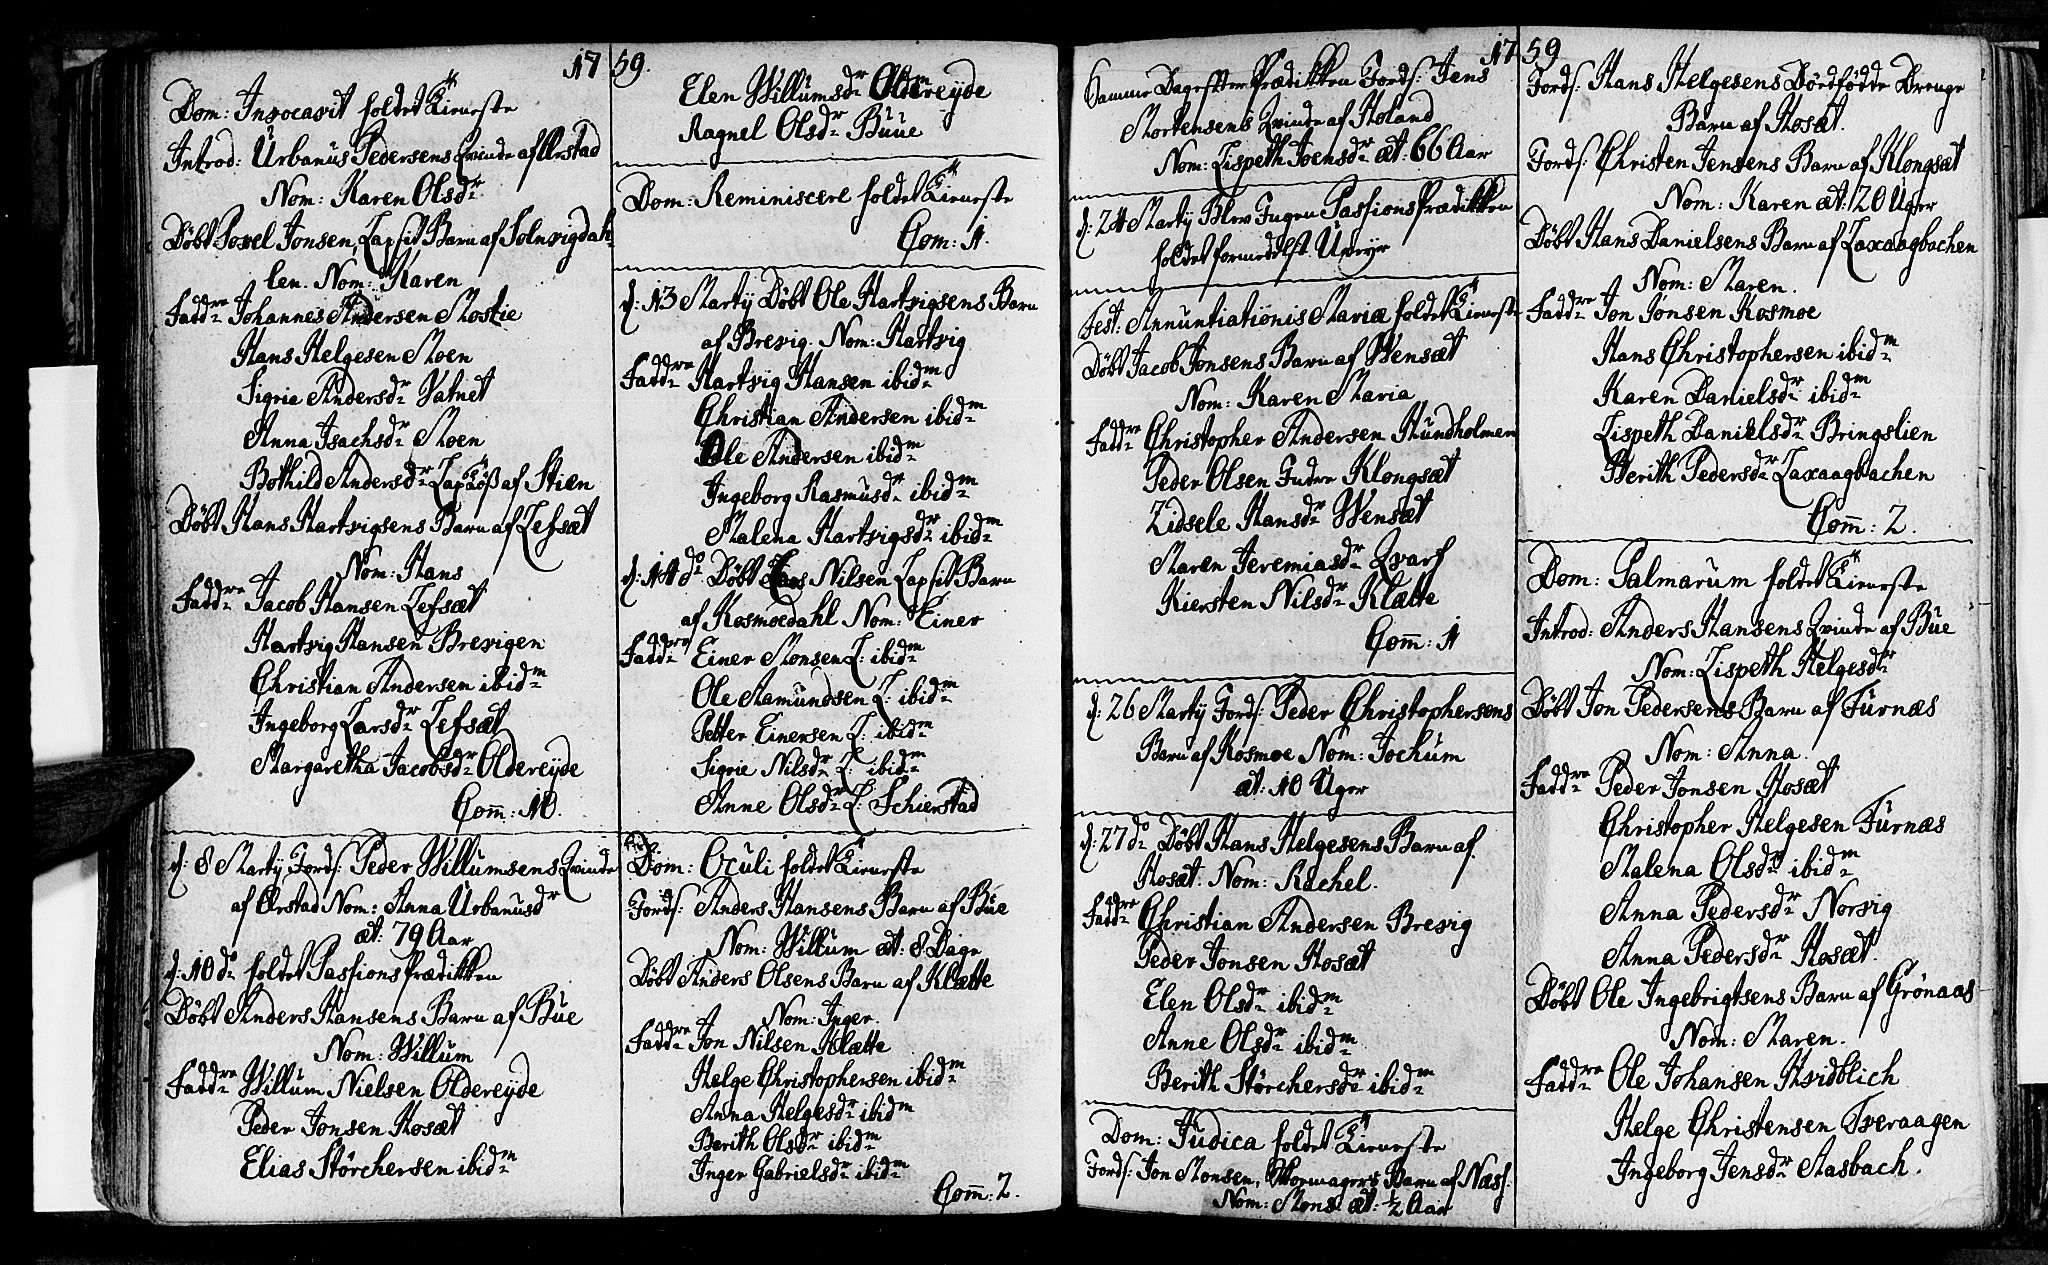 1759.
Dom: Invocavit holdet Tieneste
Introd: Urbanus Pedersens Qvinde af Ørstad
Nom: Karen Olsdr
Døbt Povel Jonsen, Lapfit Barn af Solnvigdah-
len. Nom: Karen
Faddre Johannes Andersen Mostie
Hans Helgesen Moen
Sigrie Andersdr Vatnet
Anna Isachsdr Moen
Bothild Andersdr Lap Töß af Stien
Døbt Hans Hartvigsens Barn af Lefsæt
Nom: Hans
Faddre Jacob Hansen Lefsæt
Hartvig Hansen Brevigen
Christian Andersen ibidm
Ingeborg Larsdr Lefsæt
Margaretha Jacobsdr Oldereyde
Com: 10.
d: 8 Martij Jords: Peder Willumsens Qvinde
af Ørstad Nom: Anna Urbanusdr
æt: 79 Aar
d: 10 do holdet Passions Prædikken
Døbt Anders Hansens Barn af Bue
Nom: Willum
Faddre Willum Nielsen Oldereyde
Peder Jonsen Hosæt
Elias Störchersen ibidm
Elen Willumsdr Oldereyde
Ragnel Olsdr Buue
Dom: Reminiscere holdet Tieneste
Com: 1.
d: 13 Martij Døbt Ole Hartvigsens Barn
af Brevig. Nom: Hartvig
Faddre Hartvig Hansen ibidm
Christian Andersen ibidm
Ole Andersen ibidm
Ingeborg Rasmusdr ibidm
Malena Hartvigsdr ibidm
d: 14 do Døbt Lars Nilsen Lapfit Barn
af Kosmoedahl Nom: Einer
Faddre Einer Monsen L: ibidm
Ole Aamundsen L: ibidm
Petter Einersen L: ibidm
Sigrie Nilsdr L: ibidm
Anne Olsdr L: Schierstad
Dom: Oculi holdet Tieneste
Jords: Anders Hansens Barn af Bue
Nom: Willum æt: 8 Dage
Døbt Anders Olsens Barn af Klætte
Nom: Inger.
Faddre Jon Nilsen Klætte
Helge Christophersen ibidm
Anna Helgesdr ibidm
Berith Olsdr ibidm
Inger Gabrielsdr ibidm
Com: 2.
1759
Samme Dag efter Prædikken Jords: Jens
Mortensens Qvinde af Holand
Nom: Lispeth Joensdr æt: 66 Aar
d: 24 Martij Blev Ingen Passions Prædikken
holdet formedelst Uveyr
Fest: Annuntiationis Mariæ holdet Tieneste
Døbt Jacob Jonsens Barn af Wensæt
Nom: Karen Maria
Faddre Christopher Andersen Hundholmen
Peder Olsen Indre Klongsæt
Zidsele Hansdr Wensæt
Maren Jeremiasdr Qvarf
Kiersten Nilsdr Klætte
Com: 1
d: 26 Martij Jords: Peder Christophersens
Barn af Kosmoe Nom: Jochum
æt: 10 Uger
d: 27 do Døbt Hans Helgesens Barn af
Hosæt. Nom: Rachel.
Faddre Christian Andersen Brevig
Peder Jonsen Hosæt
Elen Olsdr ibidm
Anne Olsdr ibidm
Berith Störchersdr ibidm
Dom: Judica holdet Tieneste
Jords: Jon Monsen, Skomagers Barn af Næs.
Nom: Mons æt: ½ Aar
Jords: Hans Helgesens Dödfödde Drenge
Barn af Hosæt.
Jords: Christen Jensens Barn af Klongsæt
Nom: Karen æt: 20 Uger
Døbt Hans Danielsens Barn af Laxaagbachen
Nom: Maren.
Faddre Jon Jonsen Kosmoe
Hans Christophersen ibidm
Karen Danielsdr ibidm
Lispeth Danielsdr Bringslien
Berith Pedersdr Laxaagbachen
Com: 2.
Dom: Palmarum holdet Tieneste
Introd: Anders Hansens Qvinde af Bue
Nom: Lispeth Helgesdr
Døbt Jon Pedersens Barn af Furnæs
Nom: Anna.
Faddre Peder Jonsen Hosæt
Christopher Helgesen Furnæs
Malena Olsdr ibidm
Anna Pedersdr Norvig
Anna Pedersdr Hosæt.
Døbt Ole Ingebrigtsens Barn af Grönaas
Nom: Maren.
Faddre Ole Johansen Hvidblich
Helge Christensen Tveraagen
Ingeborg Jensdr Aasbach.